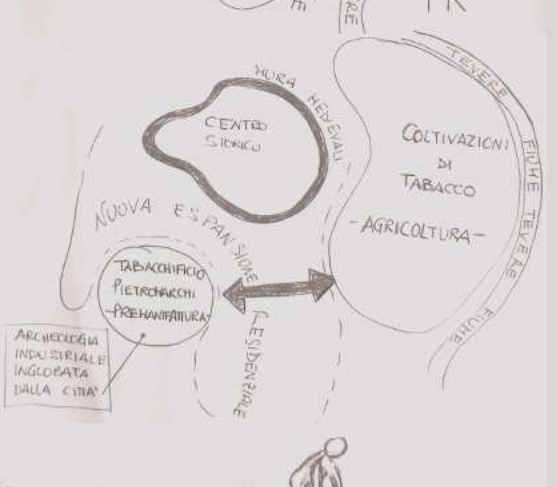 MURA MEDIEVALI
CENTRO
STORICO
COLTIVAZIONI
DI
TABACCO
-AGRICOLTURA-
TEVERE
FIUME TEVERE
FIUME
NUOVA ESPANSIONE RESIDENZIALE
TABACCHIFICIO
PIETROMARCHI
-PREMANIFATTURA-
ARCHEOLOGIA
INDUSTRIALE
INGLOBATA
DALLA CITTA'